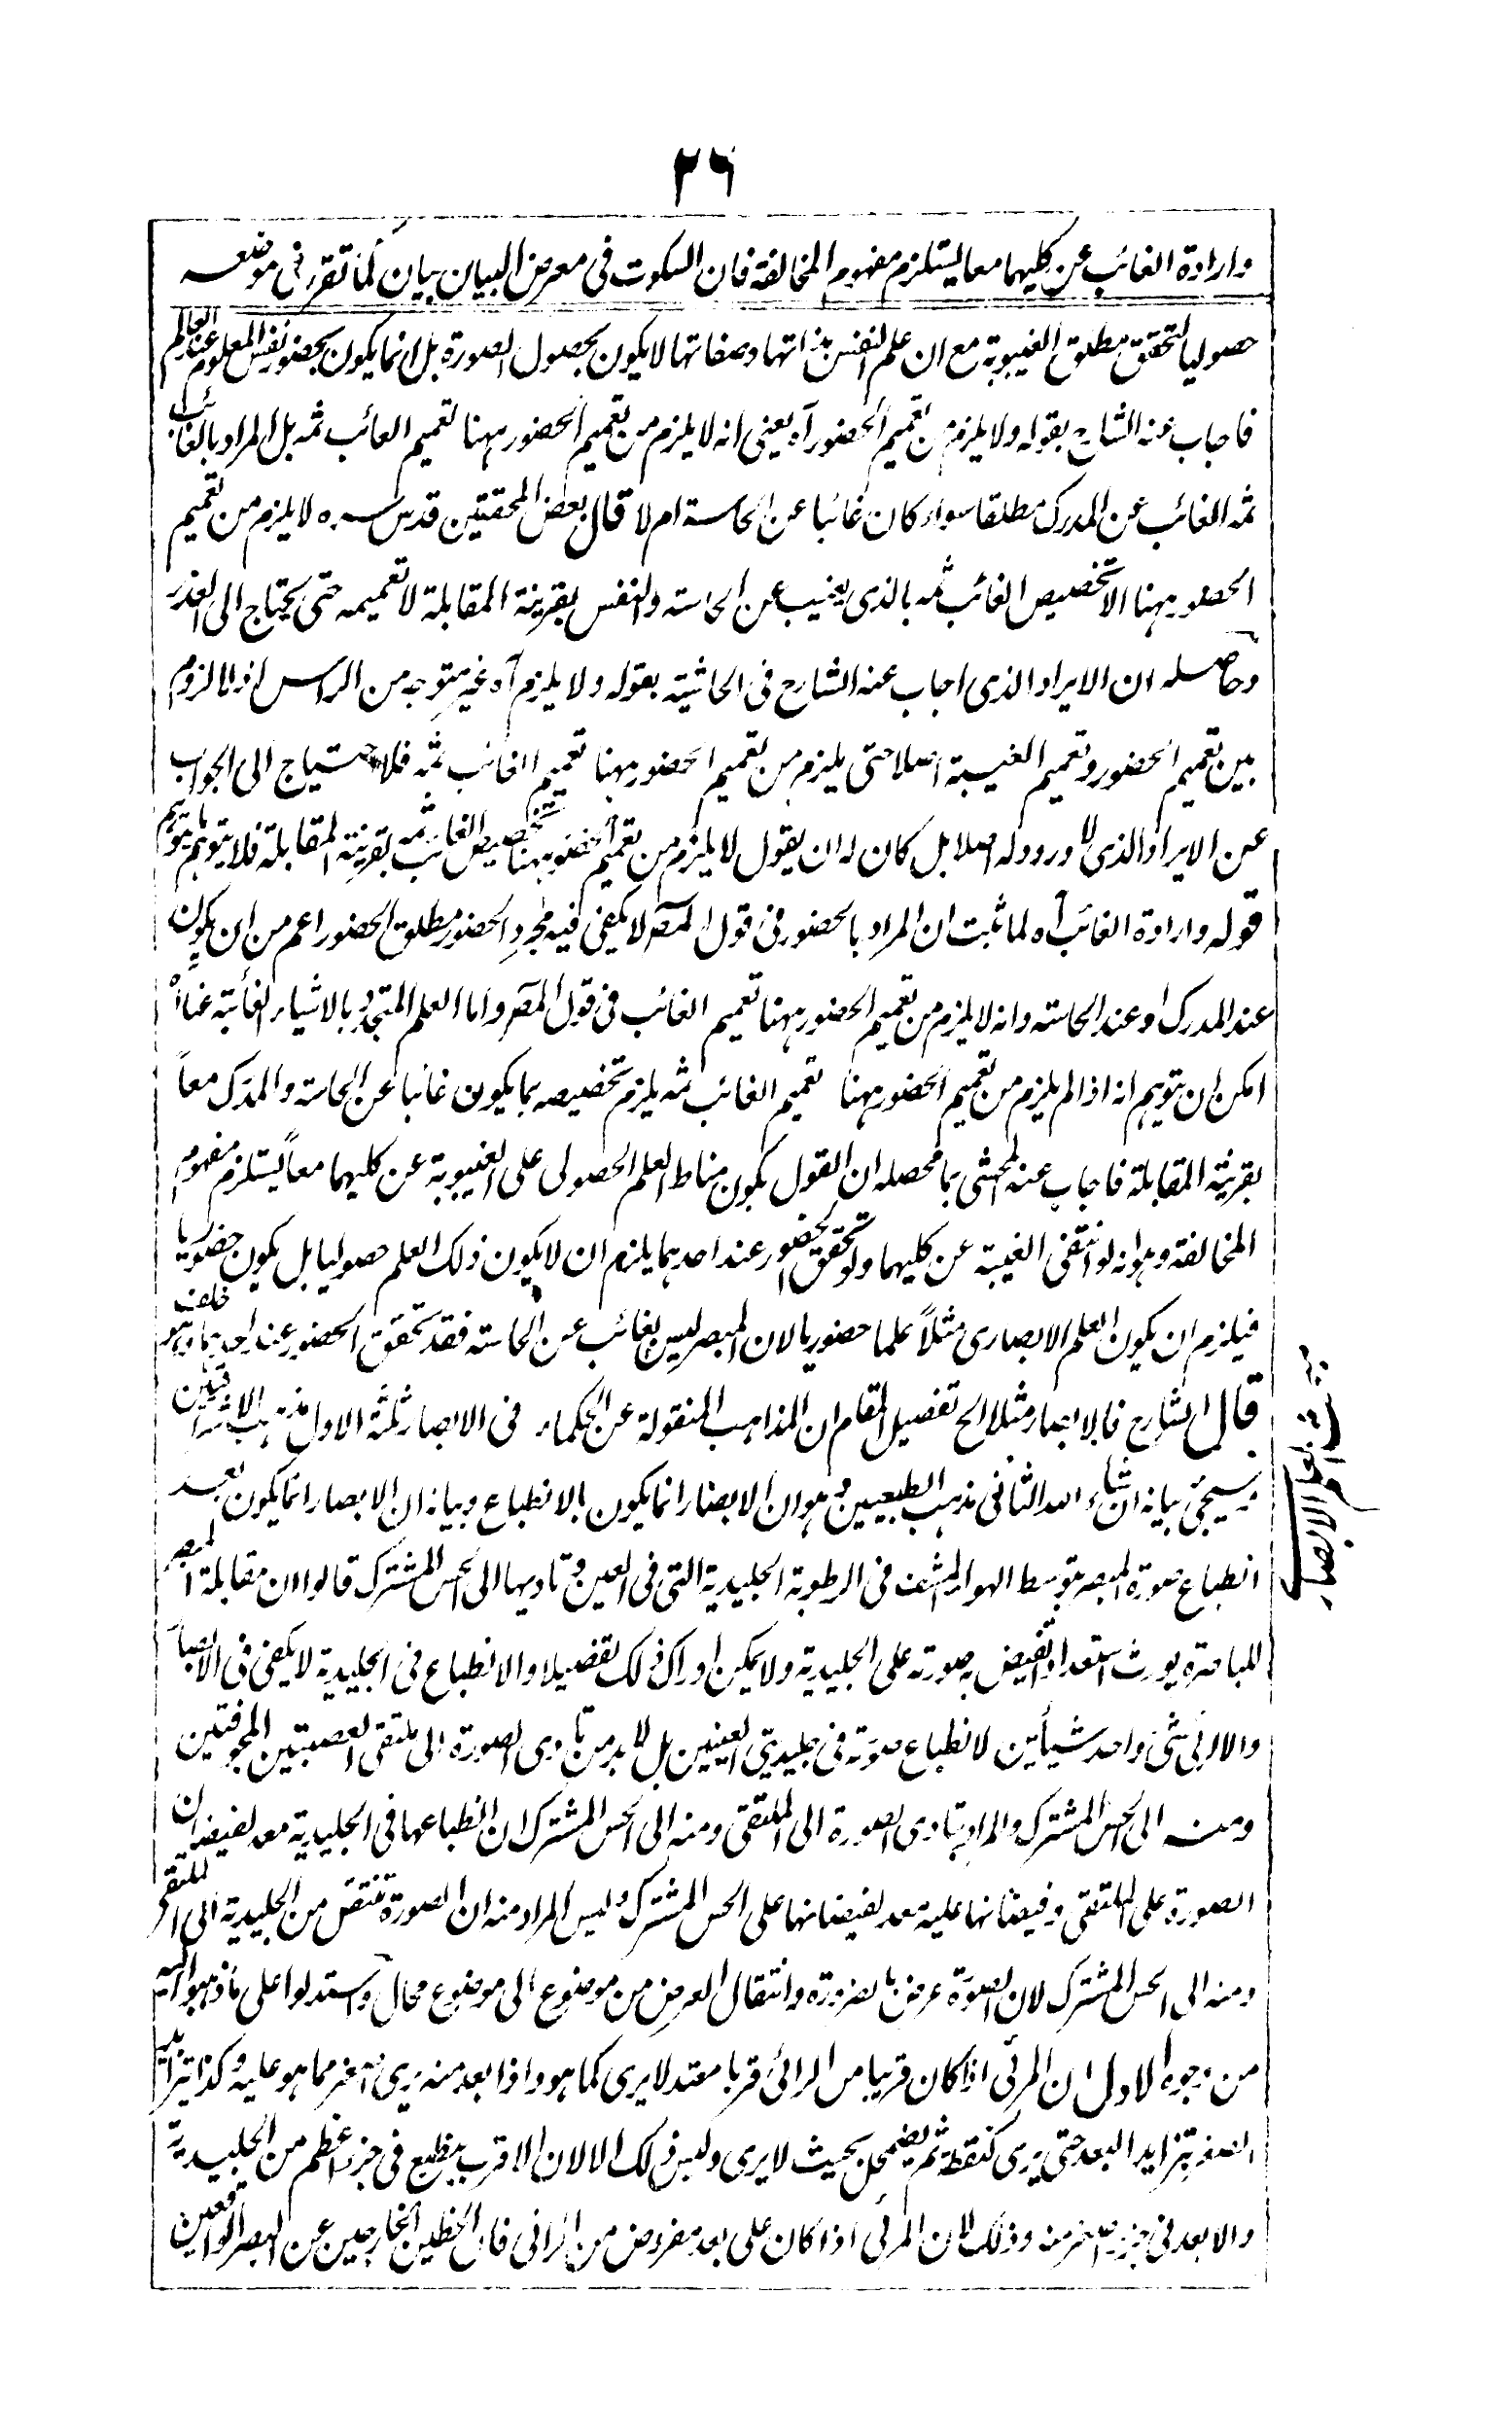 ٢٦
وارادة الغائب عن كليهما معا يستلزم مفهوم المخالفة فان السكوت فى معرض البيان بيان كما تقرر فى موضعه
حصوليا لتحقق مطلق الغيبوبة مع ان علم النفس بذاتها وصفاتها لا يكون بحصول الصورة بل انما يكون بحضور نفس المعلوم عند العالم
فاجاب عنه الشارح بقوله ولا يلزم من تعميم الحضور آه يعنى انه لا يلزم من تعميم الحضور ههنا تعميم الغائب ثمه بل المراد بالغائب
ثمه الغائب عن المدرك مطلقا سواء كان غائبا عن الحاسة ام لا قال بعض المحققين قدس سره لا يلزم من تعميم
الحضور ههنا الا تخصيص الغائب ثمه بالذى يغيب عن الحاسته والنفس بقرينة المقابلة لا تعميمه حتى يحتاج الى العذر
وحاصله ان الايراد الذى اجاب عنه الشارح فى الحاشية بقوله ولا يلزم آه غير متوجه من الراس اذ لا لزوم
بين تعميم الحضور وتعميم الغيبة اصلا حتى يلزم من تعميم الحضور ههنا تعميم الغائب ثمه فلا احتياج الى الجواب
عن الايراد الذى لا ورود له اصلا بل كان له ان يقول لا يلزم من تعميم الحضور ههنا تخصيص الغائب ثمه بقرينة المقابلة فلا يتوهم
قوله وارادة الغائب آه لما ثبت ان المراد بالحضور فى قول المصر لا يكفى فيه مجرد الحضور مطلق الحضور اعم من ان يكون
عند المدرك او عند الحاسته وانه لا يلزم من تعميم الحضور ههنا تعميم الغائب فى قول المصر واما العلم المتجدد بالاشياء الغائبة عنا آه
امكن ان يتوهم انه اذا لم يلزم من تعميم الحضور ههنا تعميم الغائب ثمه يلزم تخصيصه بما يكون غائبا عن الحاسة والمدرك معاً
بقرينة المقابلة فاجاب عنه المحشى بما محصله ان القول بكون مناط العلم الحصولى على الغيبوبة عن كليهما معاً يستلزم مفهوم
المخالفة وهو انه لو انتفى الغيبة عن كليهما ولو تحقق الحضور عند احدهما يلزم ان لا يكون ذلك العلم حصوليا بل يكون حضوريا
فيلزم ان يكون العلم الابصارى مثلاً علما حضوريا لان المبصر ليس بغائب عن الحاسته فقد تحقق الحضور عند احدهما وهو خلف
قال الشارح فالابصار مثلا الح تفصيل المقام ان المذاهب المنقولة عن الحكماء فى الابصار ثلثة الاول مذهب الاشراقيين
وسيجئ بيانه ان شاء الله الثانى مذهب الطبعيين وهو ان الابصار انما يكون بالانطباع وبيانه ان الابصار انما يكون بعد
انطباع صورة المبصر بتوسط الهواء المشف فى الرطوبة الجليدية التى فى العين وتاديها الى الحس المشترك قالوا ان مقابلة المبصر
للباصرة يورث استعدادا تفيض به صورته على الجليدية ولا يمكن ادراك ذلك تفصيلا والانطباع فى الجليدية لا يكفى فى الابصار
والا لرئى شئ واحد شيأين لانطباع صورته فى جليديتى العينين بل لا بد من تادى الصورة الى ملتقى العصبتين المجوفتين
ومنه الى الحس المشترك والمراد بتادى الصورة الى الملتقى ومنه الى الحس المشترك ان انطباعها فى الجليدية معد لفيضان
الصورة على الملتقى وفيضانها عليه معد لفيضانها على الحس المشترك وليس المراد منه ان الصورة تنتقل من الجليدية الى الملتقى
ومنه الى الحس المشترك لان الصورة عرض بالضرورة وانتقال العرض من موضوع الى موضوع محال واستدلوا على ما ذهبوا اليه
من وجوه الاول ان المرئى اذا كان قريبا من الرائى قربا معتدلا يرى كما هو واذا بعد منه يرى اصغر مما هو عليه وكذا يتزايد
الصغر بتزايد البعد حتى يرى كنقطة ثم يضمحل بحيث لا يرى وليس ذلك الا لان الاقرب ينطبع فى جزء اعظم من الجليدية
والابعد فى جزء اصغر منه وذلك لان المرئى اذا كان على بعد مفروض من الرائى فان الخطين الخارجين عن البصر الواقعين